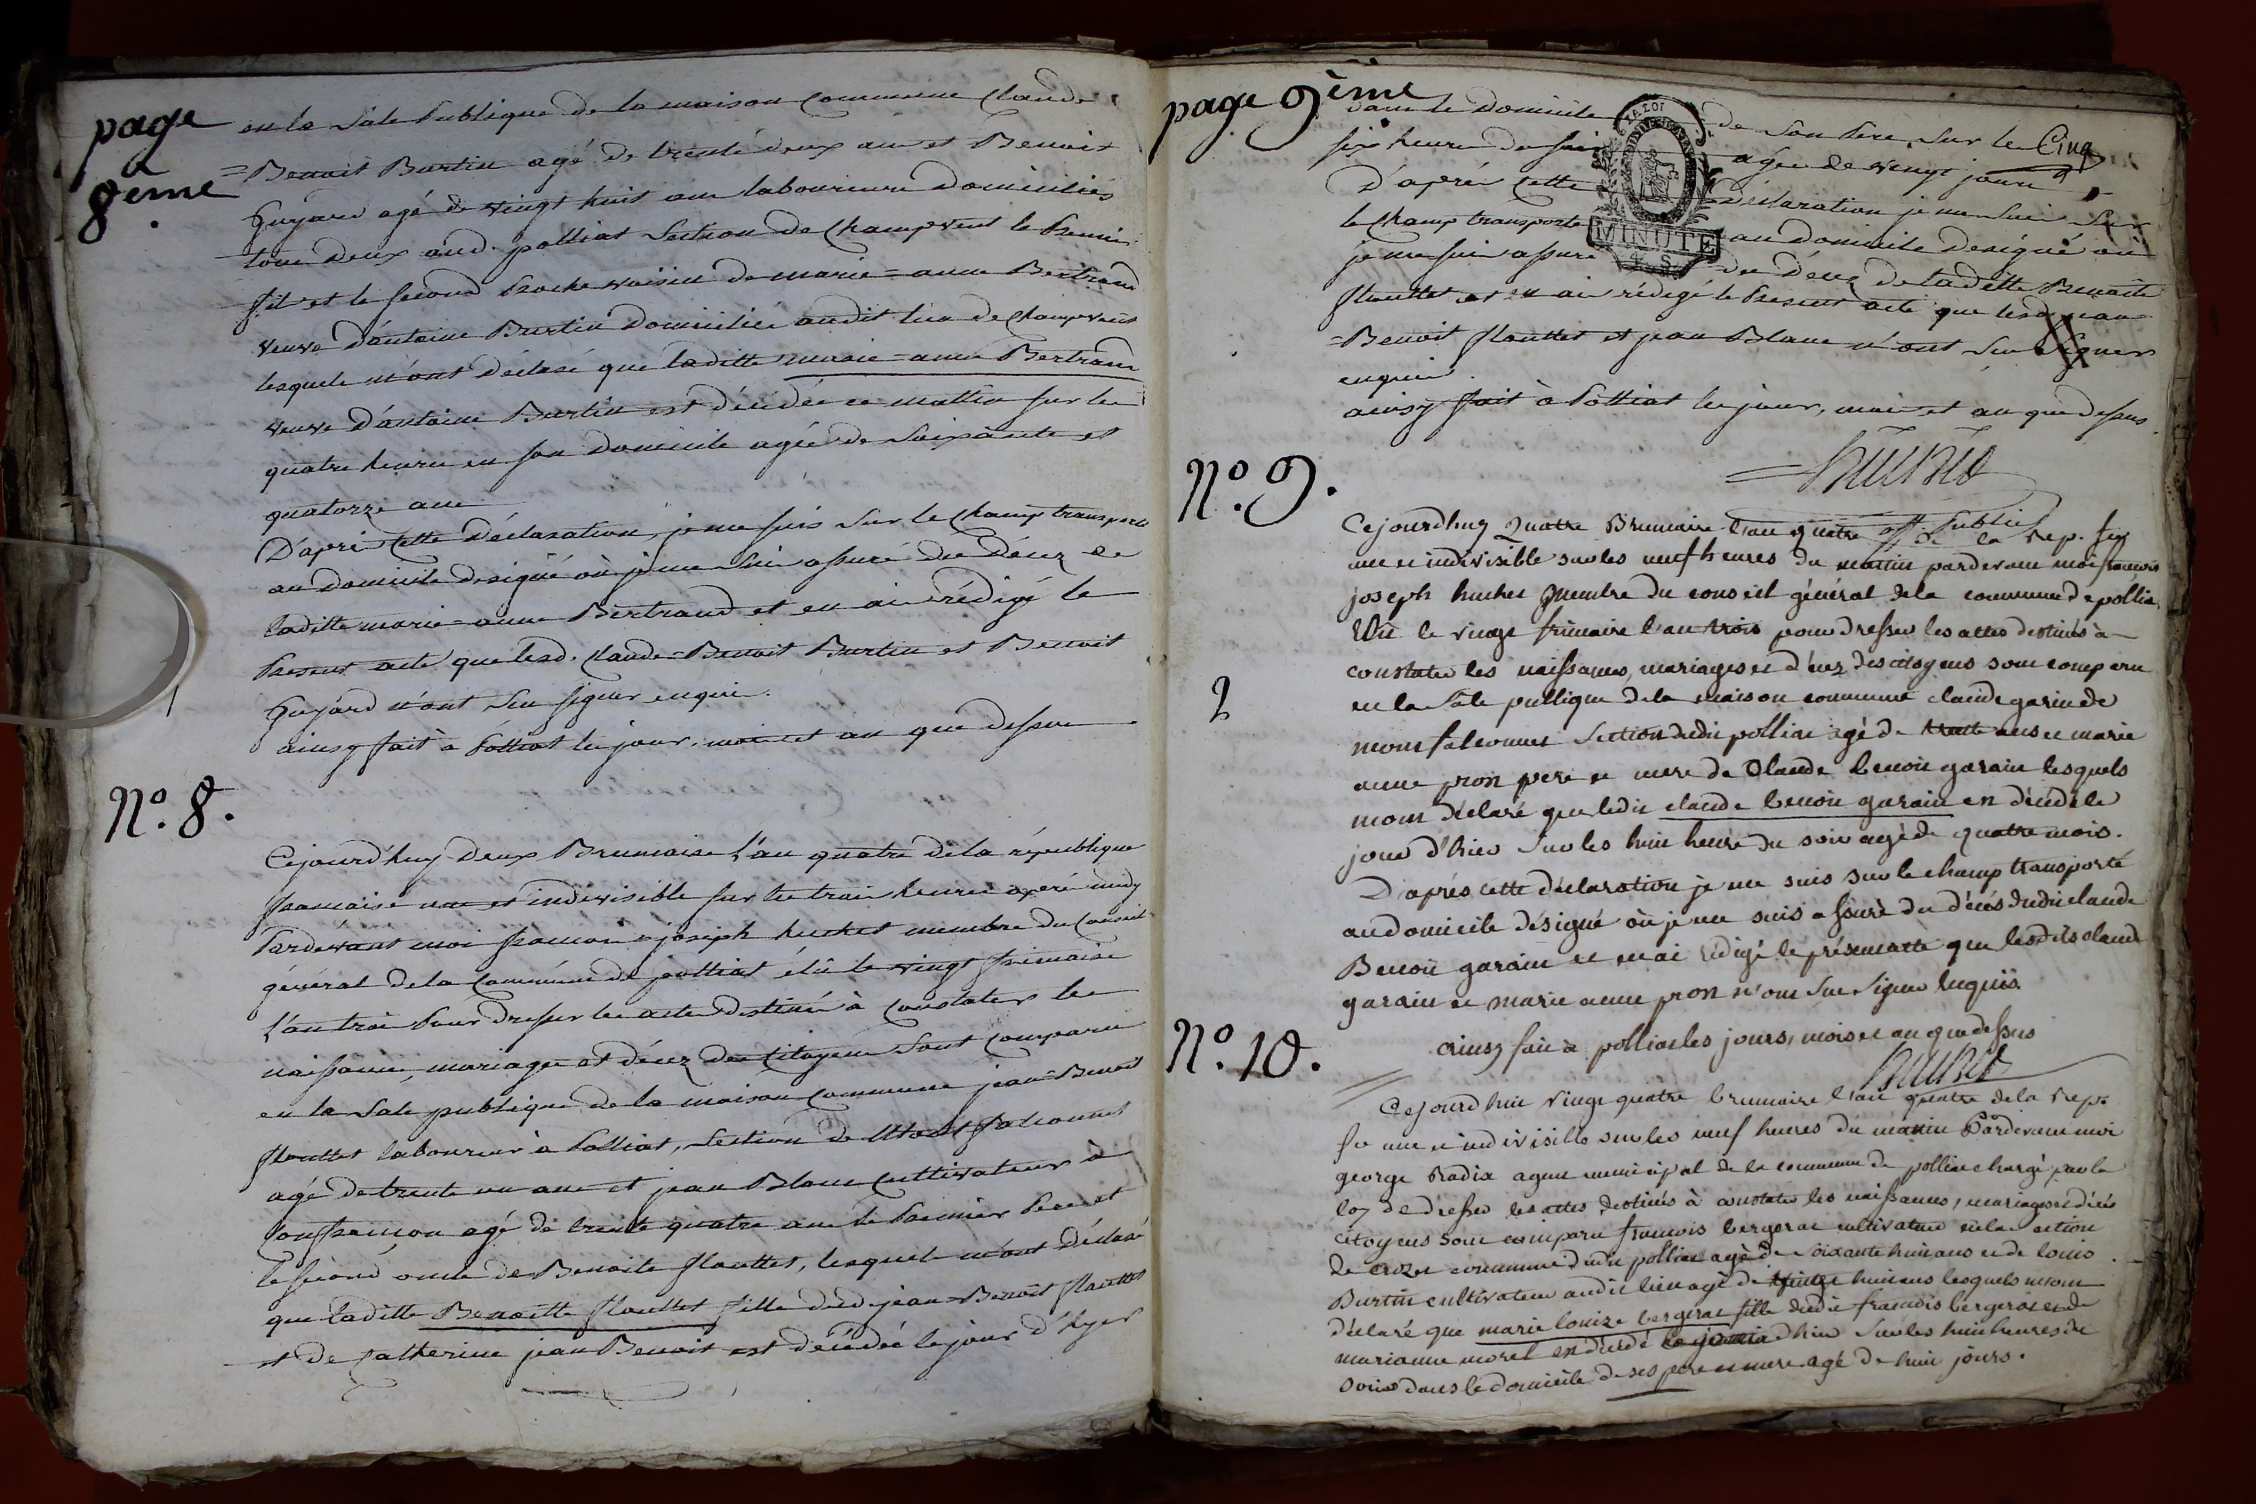 page
8ème
en la Sale publique de la maison Commune Claude
=Benoit Burtin agé de trente deux ans et Benoit
Guyard agé de vingt huit ans laboureurs domiciliés
tous deux aud. polliat Section de Champvent le premier
fil et le second proche voisin de marie=anne Bertrand
veuve d'antoine Burtin domiciliée audit lieu de Champvent
lesquels m'ont déclaré que laditte marie=anne Bertrand
veuve d'antoine Burtin est décédée ce mattin sur les
quatre heures en son domicile agée de soixante et
quatorze ans
D'après cette déclaration, je me suis sur le champ transporté
au domicile designé où je me suis assuré du décez de
laditte marie=anne Bertrand et en ai rédigé le
présent acte que lesd. Claude=Benoit Burtin et Benoit
Guyard n'ont sçu signer enquis.
ainsy fait à polliat les jour, mois et an que dessus
N°. 8.
Cejourd'huy deux Brumaire l'an quatre de la république
françaisse une et indivisible sur les trois heures après midy
pardevant moi françois=joseph huchet membre du Conseil
général de la Commune de polliat élû le vingt frimaire
l'an trois pour dresser les actes destinés à constater les
naissances, mariages et décez des Citoyens sont comparu
en la Sale publique de la maison Commune jean=Benoit
flouttet laboureur à polliat, section de Montfalconnet
agé de trente un ans et jean Blanc Cultivateur à
Confrançon agé de trente quatre ans le premier père et
le second oncle de Benoite flouttet, lesquels m'ont déclaré
que laditte Benoitte flouttet fille dud. jean=Benoit flouttet
et de Catherine jean Benoit est décédée le jour d'hyer
page 9ème
dans le domicile de son père sur les Cinq
six heures du soir agée de vingt jours
D'après cette déclaration je me suis sur
le champ transporté au domicile designé où
je me suis assuré du décez de laditte Benoite
flouttet et en ai rédigé le présent acte que lesd. jean
=Benoit flouttet et jean Blanc n'ont sçu signer
enquis.
ainsy fait à polliat les jour, mois et an que dessus.
MINUTE
huchet
off. public
N°. 9.
Cejourdhuy Quatre Brumaire l'an quatre de la rep. fse
une et indivisible sur les neuf heures du matin pardevant moi francois
joseph huchet membre du conseil général dela commune de pollia
Elû le vingt frimaire l'an trois pour dresser les actes destinés à
constater les naissances, mariages et décez des citoyens sont comparu
en la Sale publique dela maison commune claude garin de
montfalconnet Section dudit polliat agé de trente ans et marie
anne pron pere et mere de Claude benoit garain lesquels
mont déclaré que ledit claude benoit garain est décédé le
jour d'hier sur les huit heure du soir agé de quatre mois.
D'aprés cette déclaration je me suis sur le champ transporté
au domicile désigné où je me suis assuré du décés dudit claude
Benoit garain et en ai rédigé le présent acte que lesdits claude
garain et marie anne pron n'ont sçu signer enquis.
ainsy fait à polliat les jours, mois et an que dessus
huchet
N°. 10.
Cejourdhui vingt quatre brumaire l'an quatre dela rep.
fse une et indivisible sur les neuf heures du matin Pardevant moi
george Radix agent municipal de la commune de polliat chargé par la
loy de dresser les actes destinés à constater les naissances, mariages et décés
citoyens sont comparu francois bergerat cultivateur en la section
de crozet commune dudit polliat agé de soixante huit ans et de louis
Burtin cultivateur audit lieu agé de huit ans lesquels mont
déclaré que marie louize bergerat fille dudit francois bergerat et de
marianne morel est décédé d'hier sur les huit heures du
soir dans le domicile de ses pere et mere agé de huit jours.